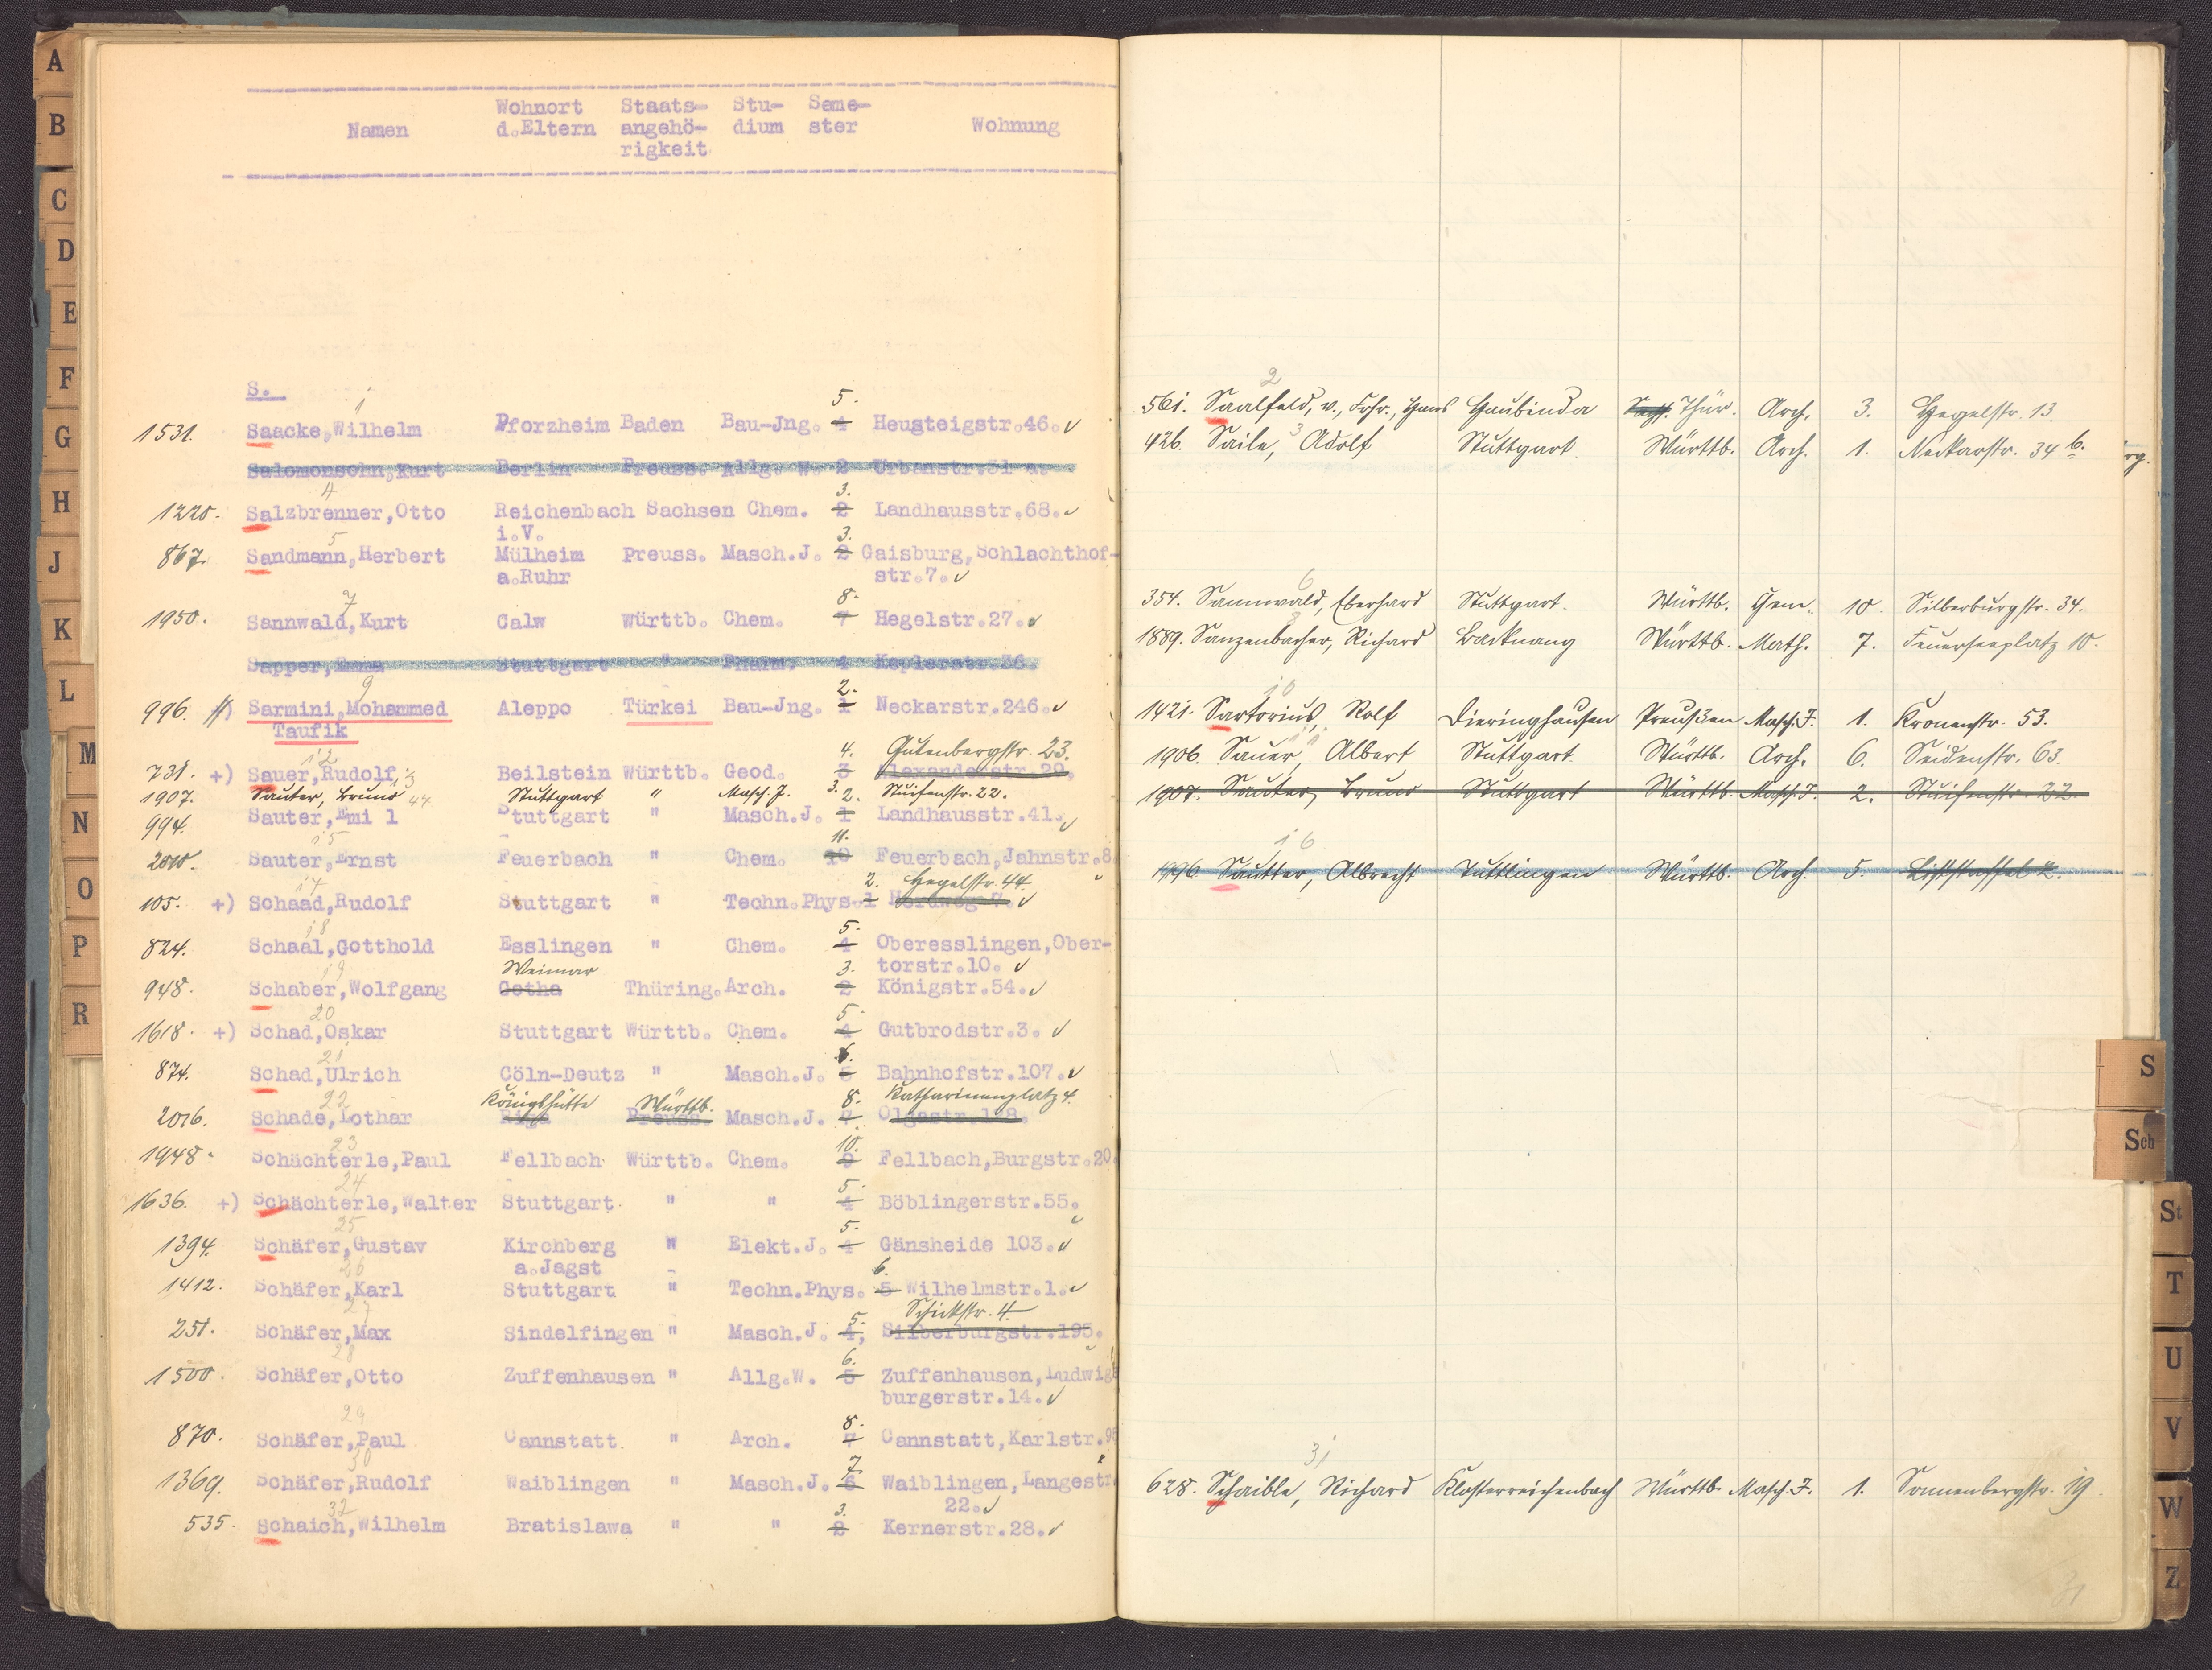 A
B
C
D
E
F
G
H
J
K
L
M
N
O
P
R
Namen Wohnort d.Eltern Staats-angehö-rigkeit Stu-dium Seme-ster Wohnung
S.
1
5.
1531. Saacke,Wilhelm Pforzheim Baden Bau-Jng. 4 Heusteigstr.46.✓
Salomonsohn,Kurt Berlin Preuss. Allg. W. 2 Urbanstr.31 a.
4
3.
1220. Salzbrenner,Otto Reichenbach Sachsen Chem. 2 Landhausstr.68.✓
i.V.
5
3.
867. Sandmann,Herbert Mülheim Preuss. Masch.J. 2 Gaisburg,Schlachthof-
a.Ruhr str.7.✓
7
8.
1950. Sannwald,Kurt Calw Württb. Chem. 7 Hegelstr.27.✓
Sapper,Emma Stuttgart " Pharm. 4 Keplerstr.36.
9
2.
996. +) Sarmini,Mohammed Aleppo Türkei Bau-Jng. 1 Neckarstr.246.✓
Taufik
12
4. Gutenbergstr. 23.
731. +) Sauer,Rudolf Beilstein Württb. Geod. 3 Alexanderstr.29.
13
1907. Sauter, Bruno Stuttgart " Masch.J. 3. Stuifenstr. 22.
14
2.
994. Sauter,Emi l Stuttgart " Masch.J. 1 Landhausstr.41.✓
15
11.
2010. Sauter,Ernst Feuerbach " Chem. 10 Feuerbach,Jahnstr.8
17
2. Hegelstr. 44.
105. +) Schaad,Rudolf Stuttgart " Techn.Phys.1 Herdweg 7.✓
18
5.
824. Schaal,Gotthold Esslingen " Chem. 4 Oberesslingen,Ober-
torstr.10.✓
19
Weimar 3.
948. Schaber,Wolfgang Gotha Thüring. Arch. 2 Königstr.54.✓
20
5.
1618. +) Schad,Oskar Stuttgart Württb. Chem. 4 Gutbrodstr.3.✓
21
6.
874. Schad,Ulrich Cöln-Deutz " Masch.J. 5 Bahnhofstr.107.✓
22
Königshütte Württb. 8. Katharinenplatz 4.
2016. Schade,Lothar Riga Preuss. Masch.J. 7. Olgastr.128.
23
10.
1948. Schächterle,Paul Fellbach Württb. Chem. 9 Fellbach,Burgstr.20.
24
5.
1636. +) Schächterle,Walter Stuttgart " " 4 Böblingerstr.55.✓
25
5.
1394. Schäfer,Gustav Kirchberg " Elekt.J. 4 Gänsheide 103.✓
a.Jagst
26
6.
1412. Schäfer,Karl Stuttgart " Techn.Phys. 5 Wilhelmstr.1.✓
27
5. Schickstr. 4.
251. Schäfer,Max Sindelfingen " Masch.J. 4, Silberburgstr.195.
28
6.
1500. Schäfer,Otto Zuffenhausen " Allg.W. 5 Zuffenhausen,Ludwigs
burgerstr.14.✓
29
8.
870. Schäfer,Paul Cannstatt " Arch. 7 Cannstatt,Karlstr.95
30
7.
1369. Schäfer,Rudolf Waiblingen " Masch.J. 6 Waiblingen,Langestr.
22.✓
32
3.
535. Schaich,Wilhelm Bratislawa " " 2 Kernerstr.28.✓
2
561. Saalfeld, v., Frhr., Hans Haubinda Sachs. Thür. Arch. 3. Hegelstr. 13
3
426. Saile, Adolf Stuttgart. Württb. Arch. 1. Neckarstr. 34 b.
rg.
6
354. Sannwald, Eberhard Stuttgart. Württb. Chem. 10. Silberburgstr. 34.
8
1889. Sanzenbacher, Richard Backnang Württb. Math. 7. Feuerseeplatz 10.
10
1421. Sartorius, Rolf Dieringhausen Preußen Masch.J. 1. Kronenstr. 53.
11
1906. Sauer, Albert Stuttgart. Württb. Arch. 6. Seidenstr. 63.
1907. Sauter, Bruno Stuttgart Württb. Masch.J. 2. Stuifenstr. 22.
16
1996. Sautter, Albrecht Tuttlingen Württb. Arch. 5. Liststaffel 2.
31
628. Schaible, Richard Klosterreichenbach Württb. Masch.J. 1. Sonnenbergstr. 19.
31
S
Sch
St
T
U
V
W
Z